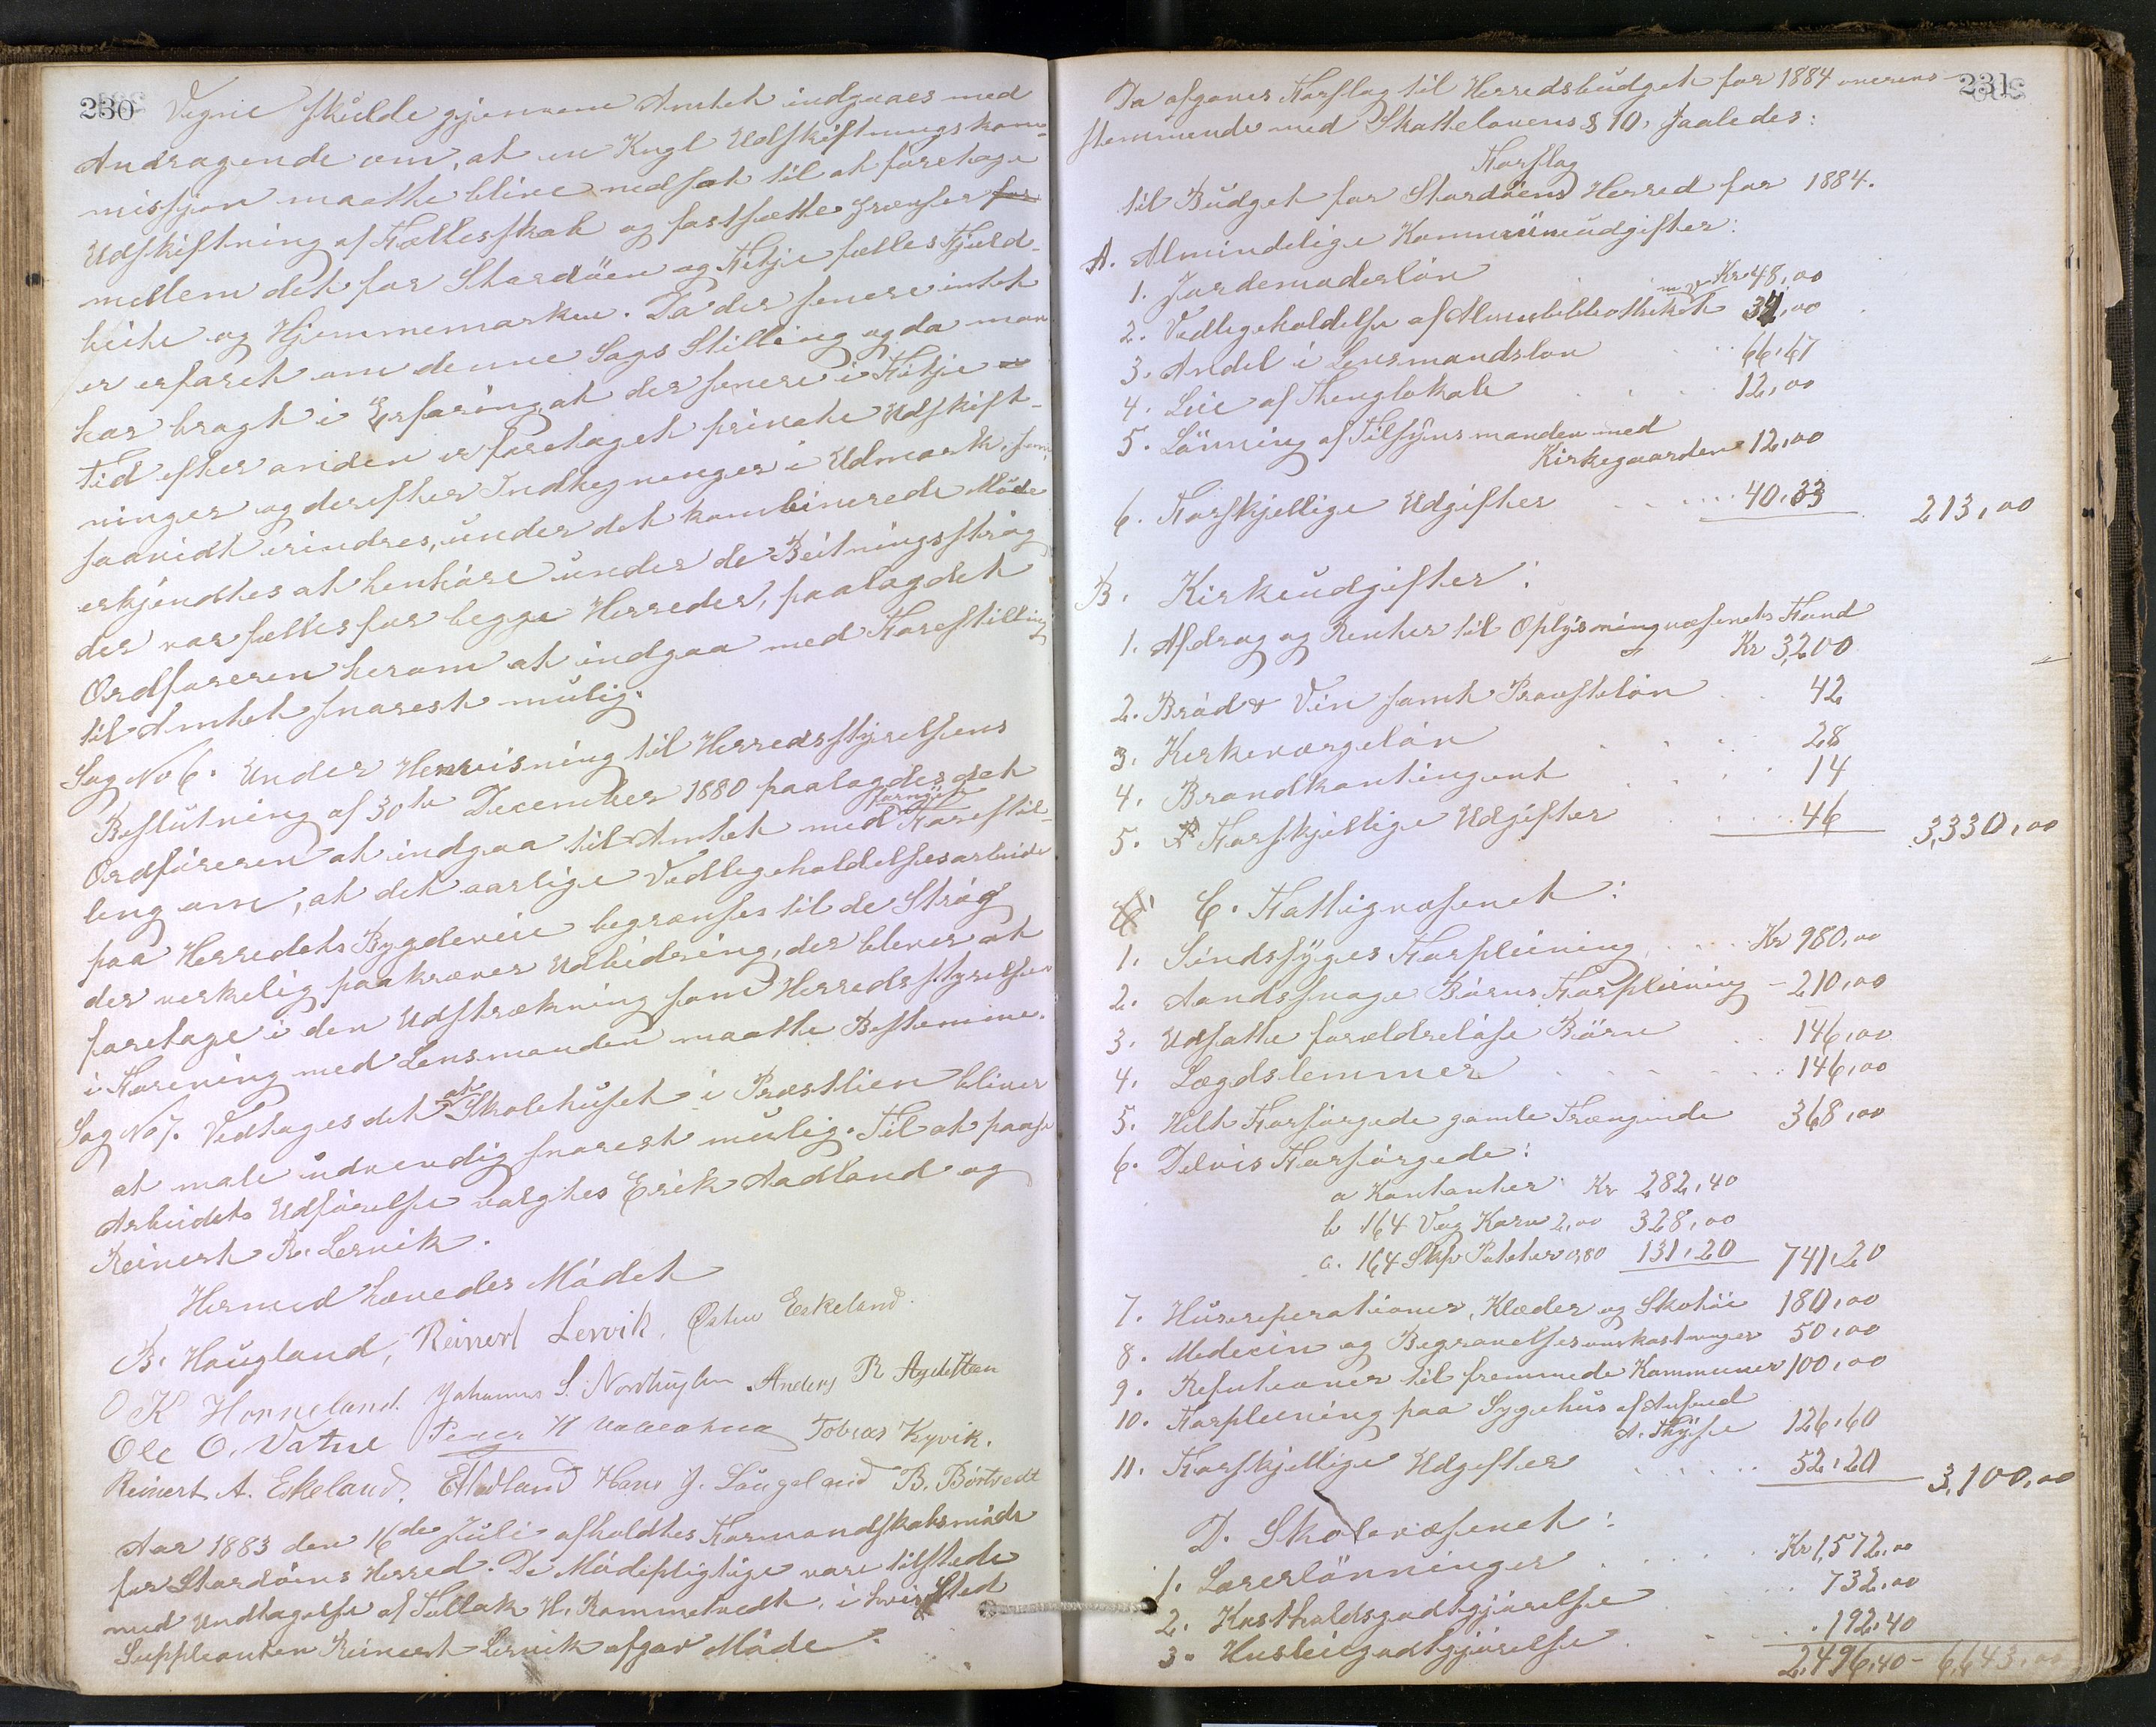 230
Vegne skulde gjennem Amtet indgaaes med
Andragende om, at en Kngl Udskiftningskom-
missjon maatte blive nedsat til at foretage
Udskiftning af Fællesskab og fastsætte Grænser for
mellem det for Stordöen og Fitje fælles Fjeld-
beite og Hjemmemarken. Da der senere intet
er erfaret om denne Sags Stilling og da man
har bragt i Erfaring, at der senere i Fitje
Tid efter anden er foretaget private Udskift-
ninger og derefter Indhegninger i Udmark, som,
saavidt erindres, under det kombinerede Möde
erkjendtes at henhöre under de Beitningsströg
der var fælles for begge Herreder, paalagdet
Ordföreren herom at indgaa med Forestilling
til Amtet snarest mulig.
Sag No 6. Under Henvisning til Herredsstyrelsens
Beslutning af 30te December 1880 paalagdes det
Ordföreren at indgaa til Amtet med fornyet Forestil-
ling om, at det aarlige Vedligeholdelsesarbeide
paa Herredets Bygdeveie begrænses til de Strög
der verkelig paakræver Udbedring, der blever at
foretage i den Udstrækning som Herredsstyrelsen
i Forening med Lensmanden maatte Bestemme.
Sag No 7. Vedtages det at Skolehuset i Præstlien bliver
at male udvendig snarest mulig. Til at paase
Arbeidets Udförelse valgtes Erik Aadland og
Reinert R. Lervik.
Hermed hævedes Mödet
B. Haugland, Reinert Lervik. Östen Eskeland.
O K Horneland. Johannes S. Nordhuglen Anders R Agdestein
Ole O. Vatne Peder H Tobias Kyvik.
Reinert A. Eskeland. EAadland Hans J. Laugeland B. Börtvedt
Aar 1883 den 16de Juli afholdtes Formandskabsmöde
for Stordöens Herred. De Mödepligtige vare tilstede
med Undtagelse af Tollak H. Rommetvedt, i hvis Sted
Suppleanten Reinert Lervik afgav Möde.
231
Da afgaves Forslag til Herredsbudget for 1884 overens-
stemmende med Skattelovens § 10, saaledes:
Forslag
til Budget for Stordöens Herred for 1884.
A. Almindelige Kommüneudgifter:
1. Jordemoderlön Kr 48,00
2. Vedligeholdelse af Almuebibliotheket m. v. 34,00
3. Andel i Lensmandslön 66,67
4. Leie af Thinglokale 12,00
5. Lönning af Tilsynsmanden med
Kirkegaarden 12,00
6. Forskjellige Udgifter 40,33 213,00
B. Kirkeudgifter:
1. Afdrag og Renter til Oplysningsvæsenets Fond
Kr 3,200
2. Bröd & Vin samt Provstelön 42
3. Kirkeværgelön 28
4. Brandkontingent 14
5. Forskjellige Udgifter 46 3,330,00
C. Fattigvæsenet:
1. Sindssyges Forpleining Kr 980,00
2. Aandssvage Börns Forpleining - 210,00
3. Udsatte forældrelöse Börn 146,00
4. Lægdslemmer 146,00
5. Helt Forsörgede gamle Trængende 368,00
6. Delvis Forsörgede:
a Kontanter Kr 282,40
b 164 Vog Korn 2,00 328,00
c. 164 Skp Poteter 0,80 131,20 741,20
7. Husreperationer, Klæder og Skotöi 180,00
8. Medecin og Begravelsesomkostninger 50,00
9. Refusioner til fremmede Kommuner 100,00
10. Forpleining paa Sygehus af
A. Thyse 126,60
11. Forskjellige Udgifter 52,20 3,100,00
D. Skolevæsenet:
1. Lærerlönninger Kr 1,572,00
2. Kostholdsgodtgjörelse 732,00
3. Husleiegodtgjörelse 192,40
2,496,40 - 6,643,00